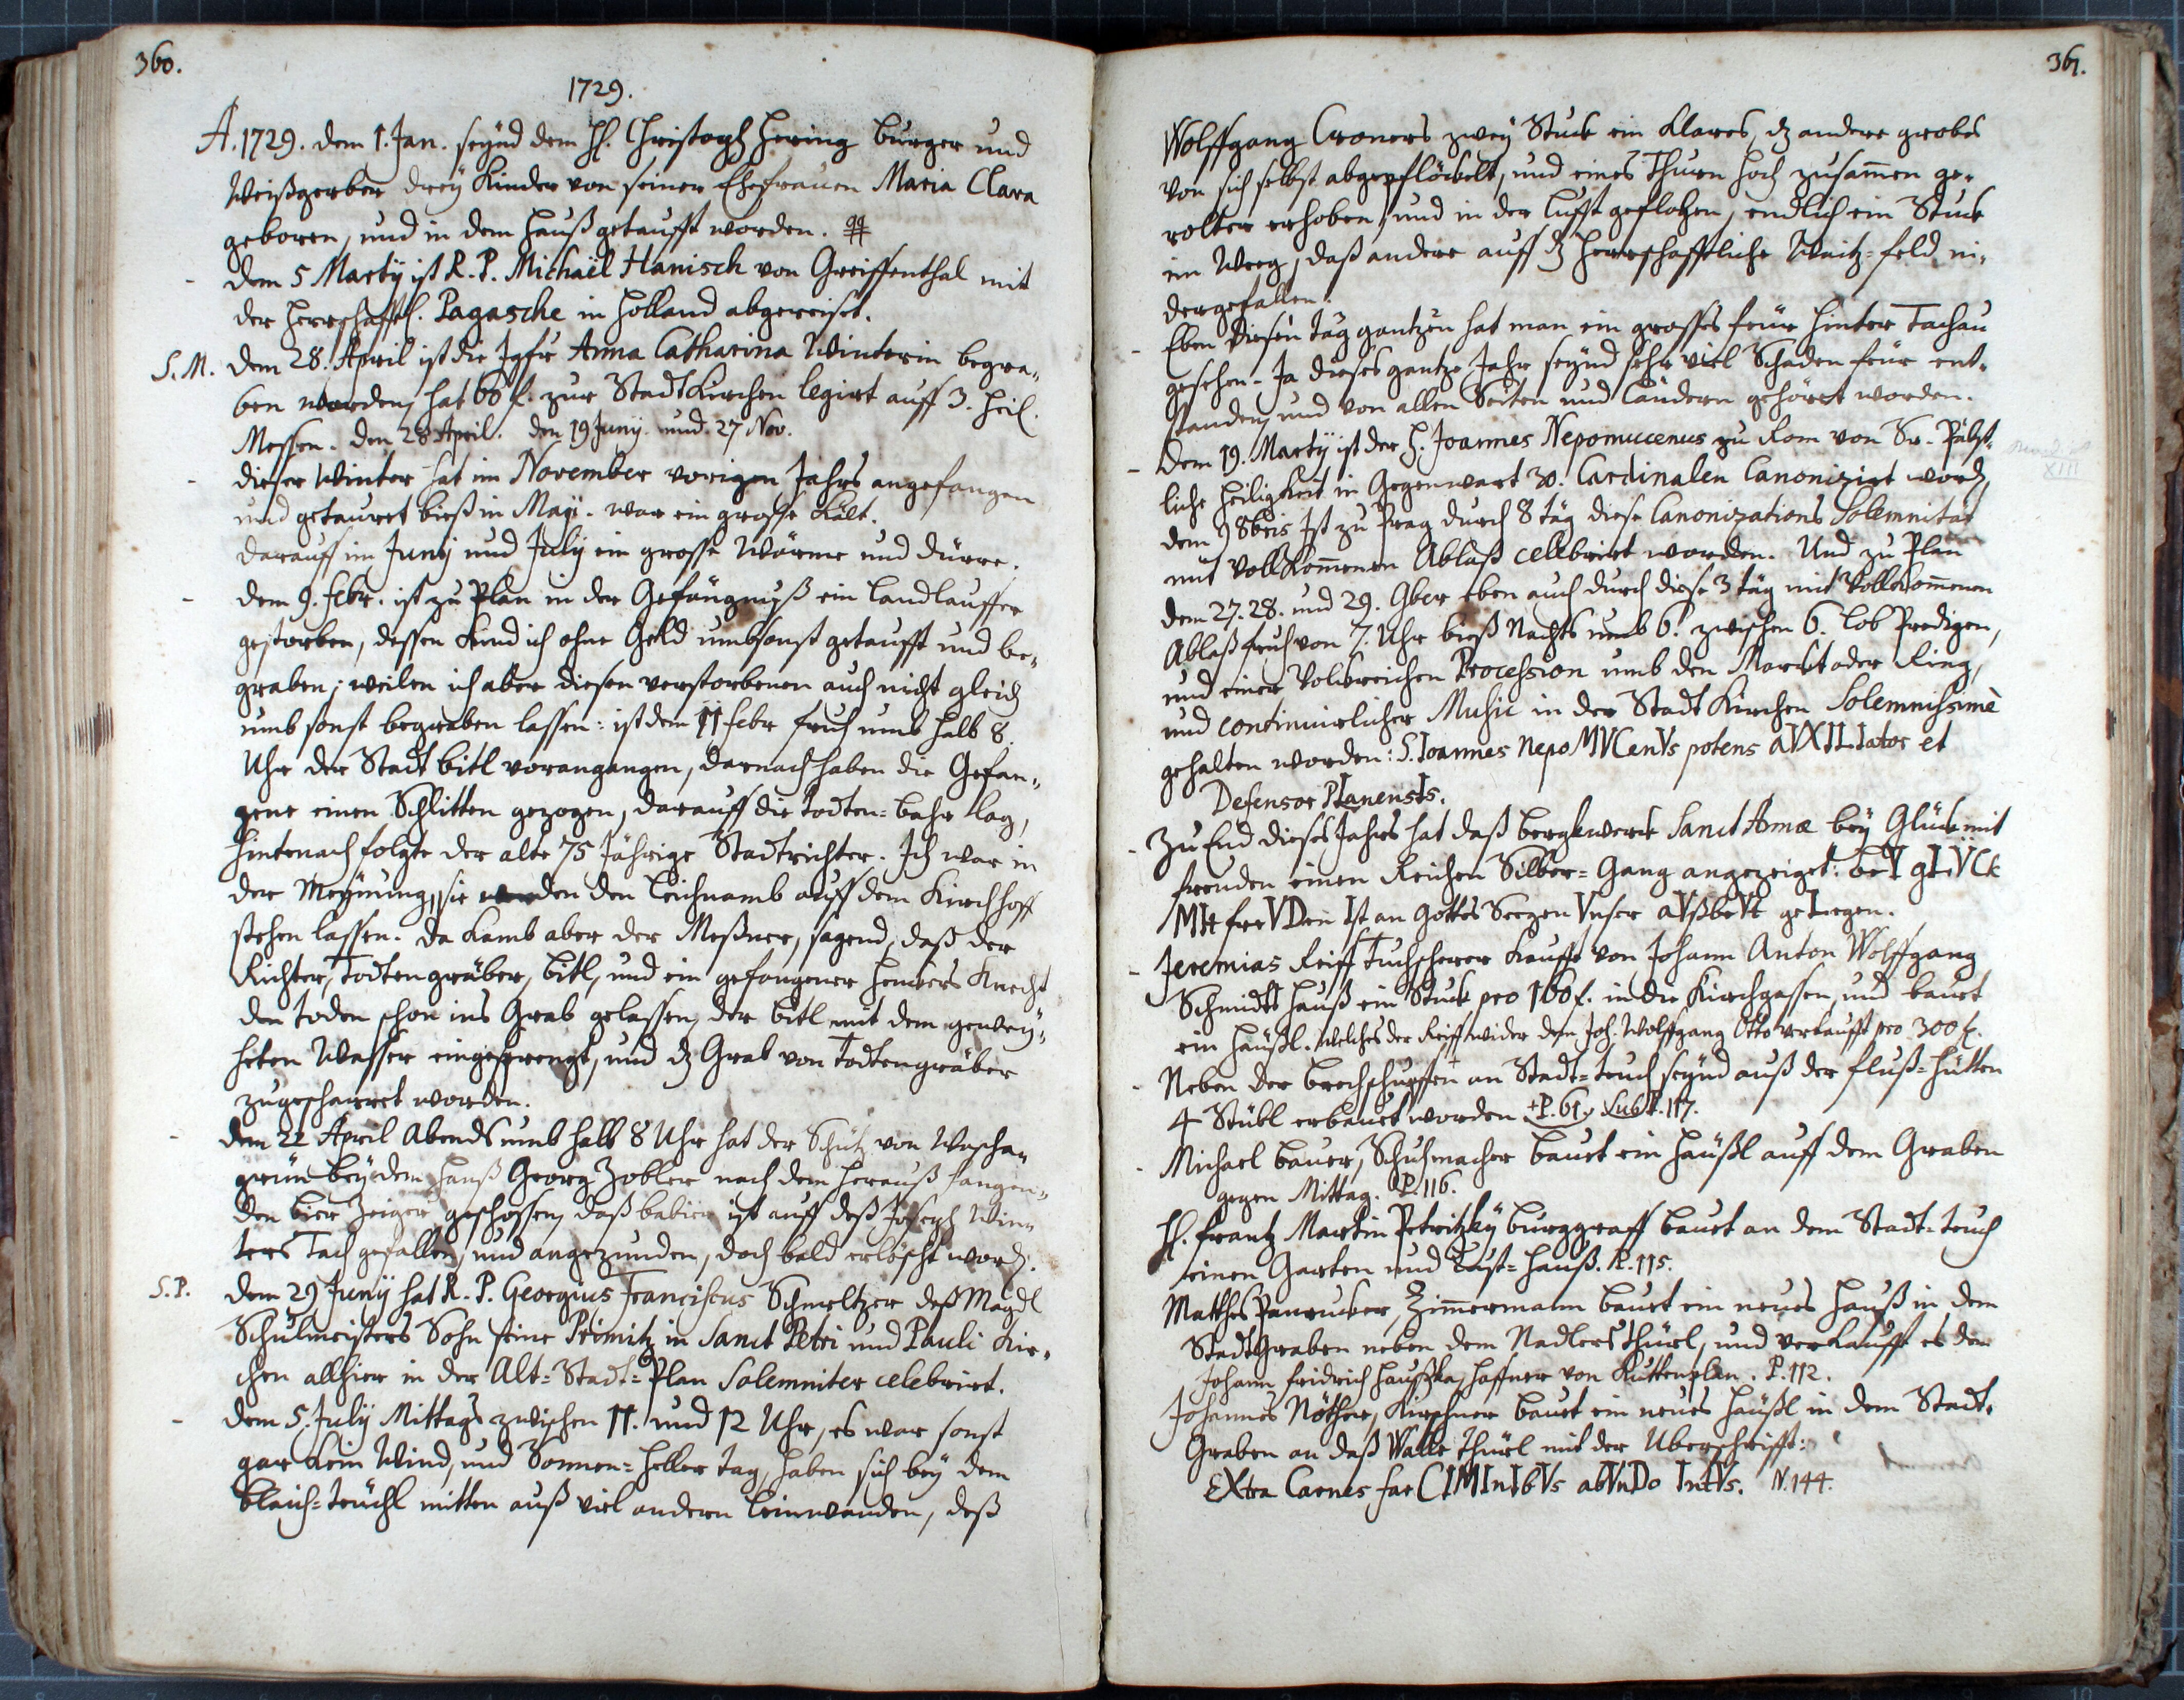 360.
1729.
A. 1729. dem 1. Jan. seynd dem H. Christoph Hering burger und
Weißgerber drey Kinder von seiner Ehefrauen Maria Clara
geboren, und in dem Hauß getaufft worden.
- dem 5 Martÿ ist R. P. Michaël Hanisch von Greiffenthal mit
der Herrschafftl. Pagasche in Holland abgereiset.
S. M. dem 28. April ist die Jgfr Anna Catharina Winterin begra„
ben worden, hat 60 f. zur StadtKirchen legirt auff 3. heil.
Messen. den 28 April. den 19 Junÿ. und. 27 Nov.
- dieser Winter hat im November vorigen Jahrs angefangen
und getauret bieß in Maji. war ein grosse Kält.
darauff im Junÿ und Julÿ ein grosse Wärme und dürre.
- dem 9. febr. ist zu Plan in der Gefängnuß ein Landlauffer
gestorben, dessen Kind ich ohne Geld umbsonst getaufft und be„
graben; weilen ich aber diesen verstorbenen auch nicht gleich
umb sonst begraben lassen: ist dem 11 febr fruh umb halb 8.
Uhr der Stadt bitl vorangangen, darnach haben die Gefan„
gene einen Schlitten gezogen, darauff die todten=bahr lag,
hintenach folgte der alte 75 Jährige Stadtrichter. Ich war in
der Meynung, sie werden den Leichnamb auff dem Kirchhoff
stehen lassen. da kamb aber der Meßner, sagend, daß der
Richter, Todtengräber, bitl, und ein gefangener Henkers Knecht
den toden schon ins Grab gelassen, der bitl mit dem geweÿ„
heten Wasser eingesprengt, und dz Grab von Todtengräber
zugescharret worden.
- dem 22 April Abends umb halb 8 Uhr hat der Schütz von Woscha„
grün beÿ dem Hauß Georg Zobler nach dem herauß hangen„
den bier Zeiger geschossen, daß babier ist auff deß Joseph Win„
ters Tach gefallen, und angezunden, doch bald erlöscht word.
S. P. dem 29 Junÿ hat R. P. Georgius Franciscus Schmeltzer deß Magdl
Schulmeisters Sohn seine Primitz in Sanct Petri und Pauli Kir„
chen allhier in der Alt=Stadt=Plan Solemniter celebrirt.
- dem 5. Julÿ Mittags zwischen 11. und 12 Uhr, es war sonst
gar kein Wind, und Sonnen=heller tag, haben sich beÿ dem
bleich=teuchl mitten auß viel andern Leinwanden, deß
361.
Wolffgang Croners zweÿ Stuck ein klares, dz andere grobes
von sich selbst abgepflöckelt, und eines Thurn hoch zusam̄en ge„
rolter erhoben, und in der Lufft geflohen, endlich ein Stuck
im Weeg, daß andere auff dz Herrschafftliche Waitz=feld ni„
dergefallen.
- Eben diesen tag gantzen hat man ein grosses feur hinter Tachau
gesehen. Ja dieses gantze Jahr seynd sehr viel Schaden feur ent„
standen, und von allen Seiten und Ländern gehöret worden.
- dem 19. Martÿ ist der H. Joannes Nepomucenus zu Rom von Sr. Päbst„
liche Heiligkeit in Gegenwart 30. Cardinalen Canonizirt word,
XIII
dem 9 8bris ist zu Prag durch 8 täg diese Canonizations Solemnitat
mit vollkom̄enen Ablaß celebrirt worden. Und zu Plan
dem 27. 28. und 29. 9ber eben auch durch diese 3 täg mit Vollkom̄enen
Ablaß fruh von 7. Uhr bieß Nachts umb 6. zwischen 6. Lob Predigen,
und einer Volkreichen Procession umb den Marckt oder Ring,
und continuirlicher Music in der Stadt Kirchen Solemnissimè
gehalten worden: S. Ioannes nepoMVCenVs potens aVXILIator et
Defensor PLanensIs.
- Zu End dieses Jahrs hat daß bergkwerck Sanct Annæ beÿ Glück mit
freuden einen Reichen Silber=Gang angezeiget: beI gLVCk
MIt freVDen Ist an Gottes Seegen Vnser aVßbeVt geLegen.
- Jeremias Reiff Tuchscherer kaufft von Johann Anton Wolffgang
Schmidts Hauß ein Stuck pro 100 f. in die Kirchgassen, und bauet
ein Häußl. welches der Reiff wider dem Joh. Wolffgang Otto verkaufft pro 300 f.
- Neben der brechschupffen an Stadt=teuch seÿnd auß der fluß=hütten
4 Stübl erbauet worden +P. 61. Sub P. 117.
- Michael Bauer, Schuhmacher bauet ein Häußl auff dem Graben
gegen Mittag. P. 116.
H. frantz Martin Petritzkÿ burggraff bauet an dem Stadt=teuch
einen Garten und Lust=Hauß. P. 115.
Matthes Panrucker, Zim̄ermann bauet ein neues Hauß in dem
StadtGraben neben dem Nadlers thürl, und verkaufft es dem
Johann fridrich Haußka, Haffner von Kuttenplan. P. 112.
Johannes Nöther, Kirschner bauet ein neues Häußl in dem Stadt„
Graben an daß Walle thürl mit der Uberschrifft:
EXtra Carnes far CIMInIbVs abVnDo IntVs. N. 144.